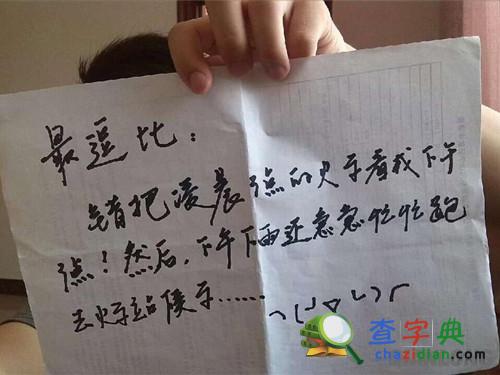 最逗比：
错把凌晨3点的火车看成下午
3点！然后，下午下雨还急急忙忙跑
去火车站候车……
查字典
chazidian.com